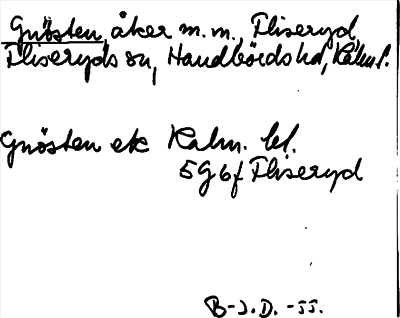 Gnösten, åker m.m., Fliseryd,
Fliseryds sn, Handbörds hd, Kalm l.
Gnösten ek Kalm. bl.
5G6f Fliseryd
B-J.D. -55.